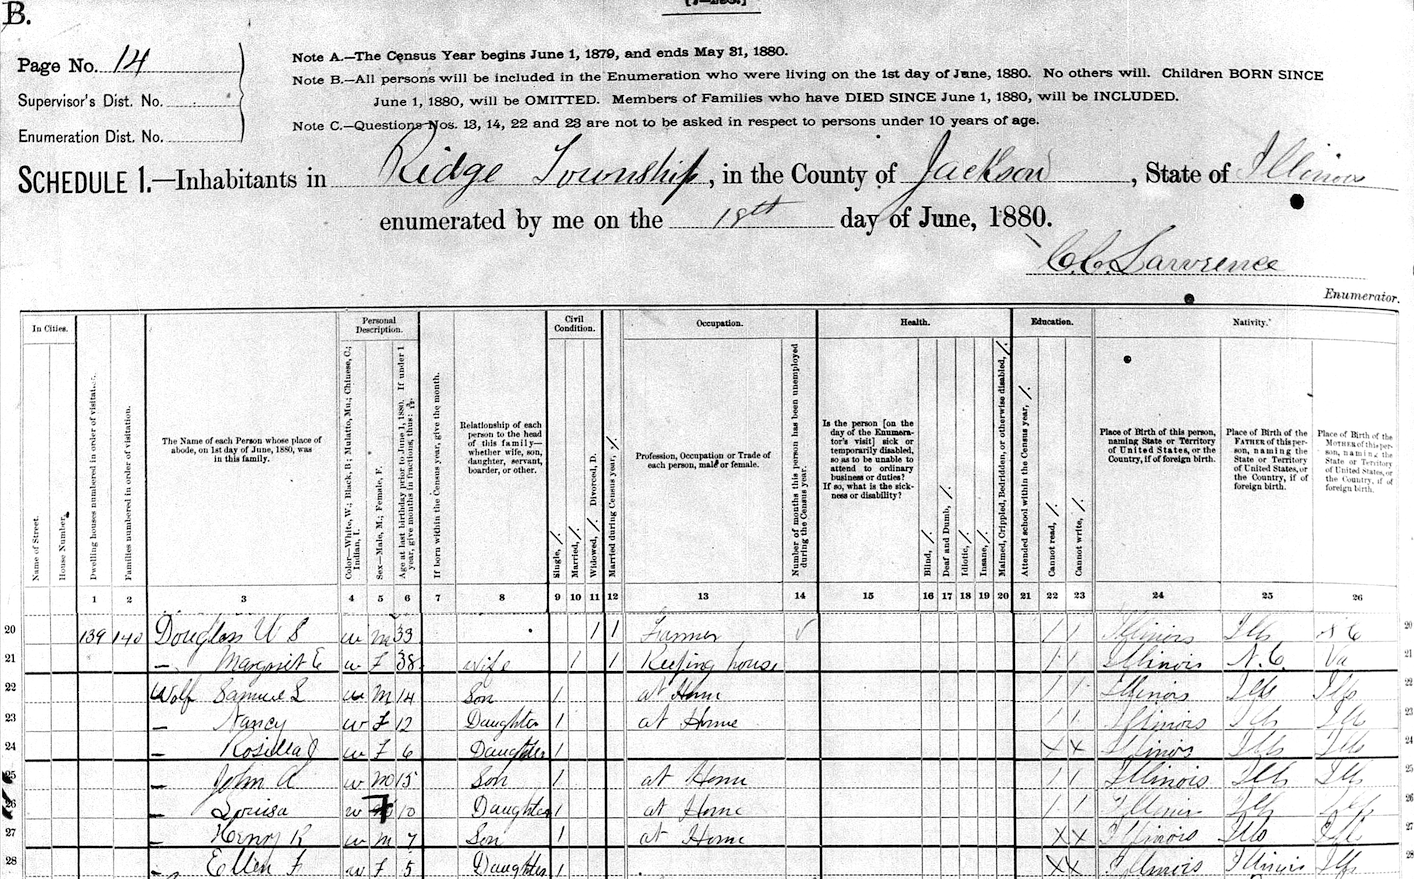 B.
Page No. 14
Supervisor's Dist. No.
Enumeration Dist. No.
Note A.—The Census Year begins June 1, 1879, and ends May 31, 1880.
Note B.—All persons will be included in the Enumeration who were living on the 1st day of June, 1880. No others will. Children BORN SINCE
June 1, 1880, will be OMITTED. Members of Families who have DIED SINCE June 1, 1880, will be INCLUDED.
Note C.—Questions Nos. 13, 14, 22 and 23 are not to be asked in respect to persons under 10 years of age.
SCHEDULE 1.—Inhabitants in Ridge Township, in the County of Jackson, State of Illinois
enumerated by me on the 18th day of June, 1880.
C.C. Lawrence
Enumerator.
In Cities.
Name of Street.
House Number.
Dwelling houses numbered in order of visitation.
Families numbered in order of visitation.
The Name of each Person whose place of
abode, on 1st day of June, 1880, was
in this family.
Personal
Description.
Color—White, W.; Black, B.; Mulatto, Mu.; Chinese, C.;
Indian, I.
Sex—Male, M.; Female, F.
Age at last birthday prior to June 1, 1880. If under 1
year, give months in fractions, thus:
If born within the Census year, give the month.
Relationship of each
person to the head
of this family—
whether wife, son,
daughter, servant,
boarder, or other.
Civil
Condition.
Single, /.
Married, /.
Widowed, /. Divorced, D.
Married during Census year, /.
Occupation.
Profession, Occupation or Trade of
each person, male or female.
Number of months this person has been unemployed
during the Census year.
Health.
Is the person [on the
day of the Enumera-
tor's visit] sick or
temporarily disabled,
so as to be unable to
attend to ordinary
business or duties?
If so, what is the sick-
ness or disability?
Blind, /.
Deaf and Dumb, /.
Idiotic, /.
Insane, /.
Maimed, Crippled, Bedridden, or otherwise disabled, /.
Education.
Attended school within the Census year, /.
Cannot read, /.
Cannot write, /.
Nativity.
Place of Birth of this person,
naming State or Territory
of United States, or the
Country, if of foreign birth.
Place of Birth of the
FATHER of this per-
son, naming the
State or Territory
of United States, or
the Country, if of
foreign birth.
Place of Birth of the
MOTHER of this per-
son, naming the
State or Territory
of United States, or
the Country, if of
foreign birth.
1 2 3 4 5 6 7 8 9 10 11 12 13 14 15 16 17 18 19 20 21 22 23 24 25 26
20 139 140 Douglass W S w m 33 / / Farmer / / Illinois Ills N C 20
21 — Margaret E w F 38 wife / / Keeping house / / Illinois N.C. Va 21
22 Wolf Samuel L w M 14 Son / at Home / / Illinois Ills Ills 22
23 — Nancy w F 12 Daughter / at Home / / Illinois Ills Ills 23
24 — Rosilla J w F 6 Daughter / X X Illinois Ills Ills 24
25 — John A w M 15 Son / at Home / / Illinois Ills Ills 25
26 — Louisa w F 10 Daughter / at Home / / Illinois Ills Ills 26
27 — Henry R w M 7 Son / at Home X X Illinois Ills Ills 27
28 — Ellen F w F 5 Daughter / X X Illinois Illinois Ills 28